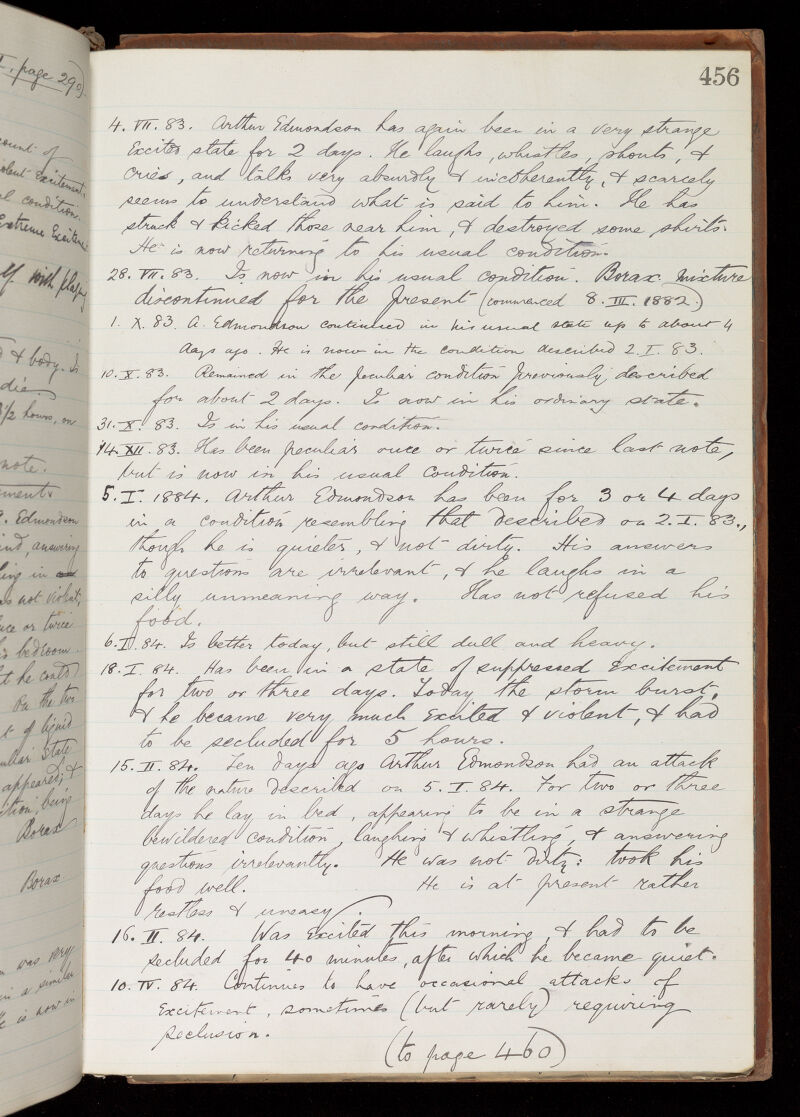 I, page 290)
count of
violent excitement
al condition.
Extreme Excitem
if with
& body. Is
die
3½ hours, on
note.
ments
. Edmondson
ind, answering
ing in
as not violent,
nce or twice
is bedroom
t he could
On the two
t of liquid
uliar state
appeared, &
ition, being
Borax
Borax
was very
in a similar
He is now in
456
4. VII. 83. Arthur Edmondson has again been in a very strange
Excited state for 2 days. He laughs, whistles, shouts, &
cries, and talks very absurdly & incoherently, & scarcely
seems to understand what is said to him. He has
struck & kicked those near him, & destroyed some shirts.
He is now returning to his usual condition.
28. VII. 83. Is now in his usual condition. Borax mixture
discontinued for the present (commenced 8. III. 1882.)
1. X. 83. A. Edmondson continued in his usual state up to about 4
days ago. He is now in the condition described 2. I. 83.
10. X. 83. Remained in the peculiar condition previously described
for about 2 days. Is now in his ordinary state.
31. X. 83. Is in his usual condition.
14. XII. 83. Has been peculiar once or twice since last note,
but is now in his usual condition.
5. I. 1884. Arthur Edmondson has been for 3 or 4 days
in a condition resembling that described on 2. I. 83.,
though he is quieter, & not dirty. His answers
to questions are irrelevant, & he laughs in a
silly unmeaning way. Has not refused his
food.
6. I. 84. Is better today, but still dull and heavy.
18. I. 84. Has been in a state of suppressed excitement
for two or three days. Today the storm burst,
& he became very much Excited & violent, & had
to be secluded for 5 hours.
15. II. 84. Ten days ago Arthur Edmondson had an attack
of the nature described on 5. I. 84. For two or three
days he lay in bed, appearing to be in a strange
bewildered condition, laughing & whistling & answering
questions irrelevantly. He was not dirty: took his
food well. He is at present rather
restless & uneasy.
16. II. 84. Was Excited this morning, & had to be
secluded for 40 minutes, after which he became quiet.
10. IV. 84. Continues to have occasional attacks of
Excitement, sometimes (but rarely) requiring
seclusion.
(to page 460)